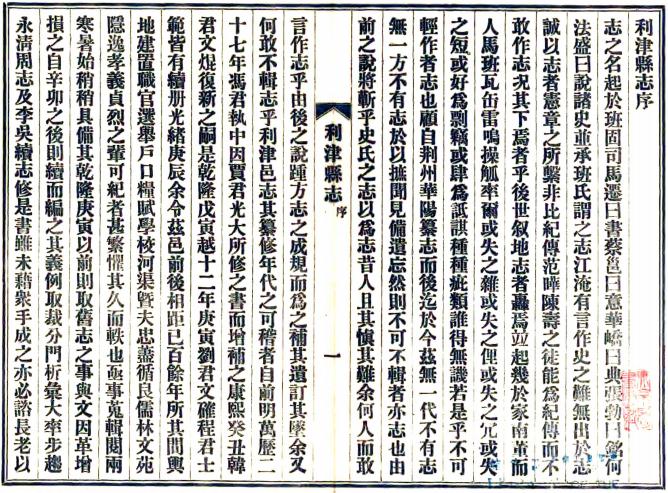 利津縣志序
志之名起於班固司馬遷曰書蔡邕曰意華嶠曰典張勃曰錄何
法盛曰說諸史並承班氏謂之志江淹有言作史之難無出於志
誠以志者憲章之所繫非比紀傳范曄陳壽之徒能為紀傳而不
敢作志况其下焉者乎後世叙地志者轟焉竝起幾於家南董而
人馬班瓦缶雷鳴操觚率爾或失之雜或失之俚或失之冗或失
之短或好為剽竊或肆為詆諆種種疵類誰得無譏若是乎不可
輕作者志也顧自荆州華陽纂志而後迄於今茲無一代不有志
無一方不有志於以摭聞見備遺忘然則不可不輯者亦志也由
前之說將蘄乎史氏之志以為志昔人且其慎其難余何人而敢
利津縣志
序
一
言作志乎由後之說踵方志之成規而為之補其遺訂其墜余又
何敢不輯志乎利津邑志其纂修年代之可稽者自前明萬歷二
十七年馮君執中因賈君光大所修之書而增補之康熙癸丑韓
君文焜復新之嗣是乾隆戊寅越十二年庚寅劉君文確程君士
範皆有續册光緒庚辰余令茲邑前後相距已百餘年所其間輿
地建置職官選舉戶口糧賦學校河渠暨夫忠藎循良儒林文苑
隱逸孝義貞烈之輩可紀者甚繁懼其久而軼也亟事蒐輯閱兩
寒暑始稍稍具備其乾隆庚寅以前則取舊志之事與文因革增
損之自辛卯之後則續而編之其義例取裁分門析彙大率步趨
永清周志及李吳續志修是書雖未藉衆手成之亦必諮長老以